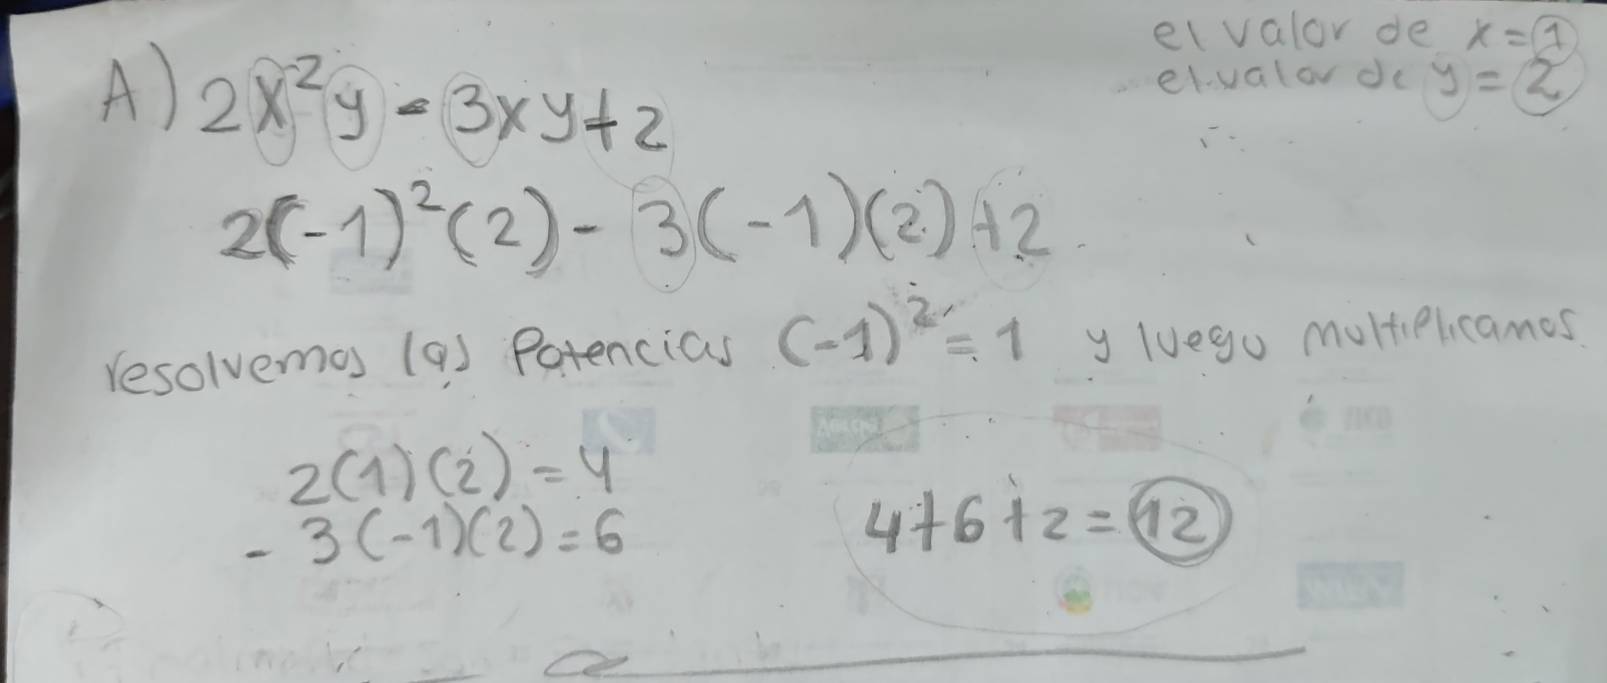 el valor de x = 1
el valor de y = 2
A) 2x²y - 3xy + 2
2(-1)²(2) - 3(-1)(2) + 2
resolvemos las Potencias (-1)² = 1 y luego multiplicamos.
2(1)(2) = 4
- 3(-1)(2) = 6
4 + 6 + 2 = 12